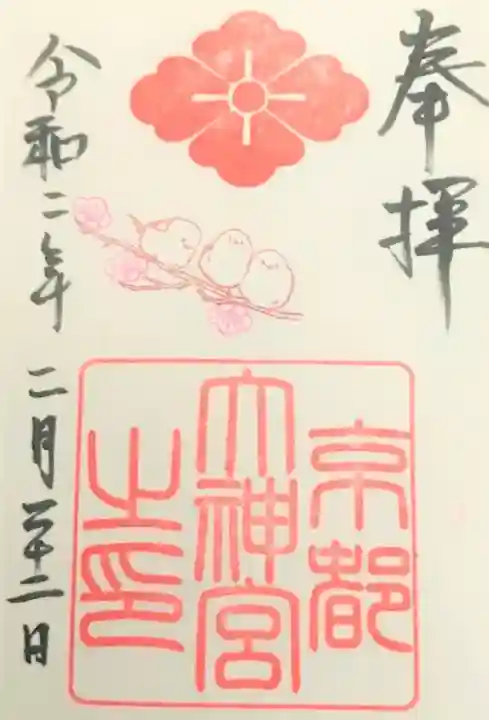 奉拝
京都
大神宮
之印
令和二年 二月二十二日